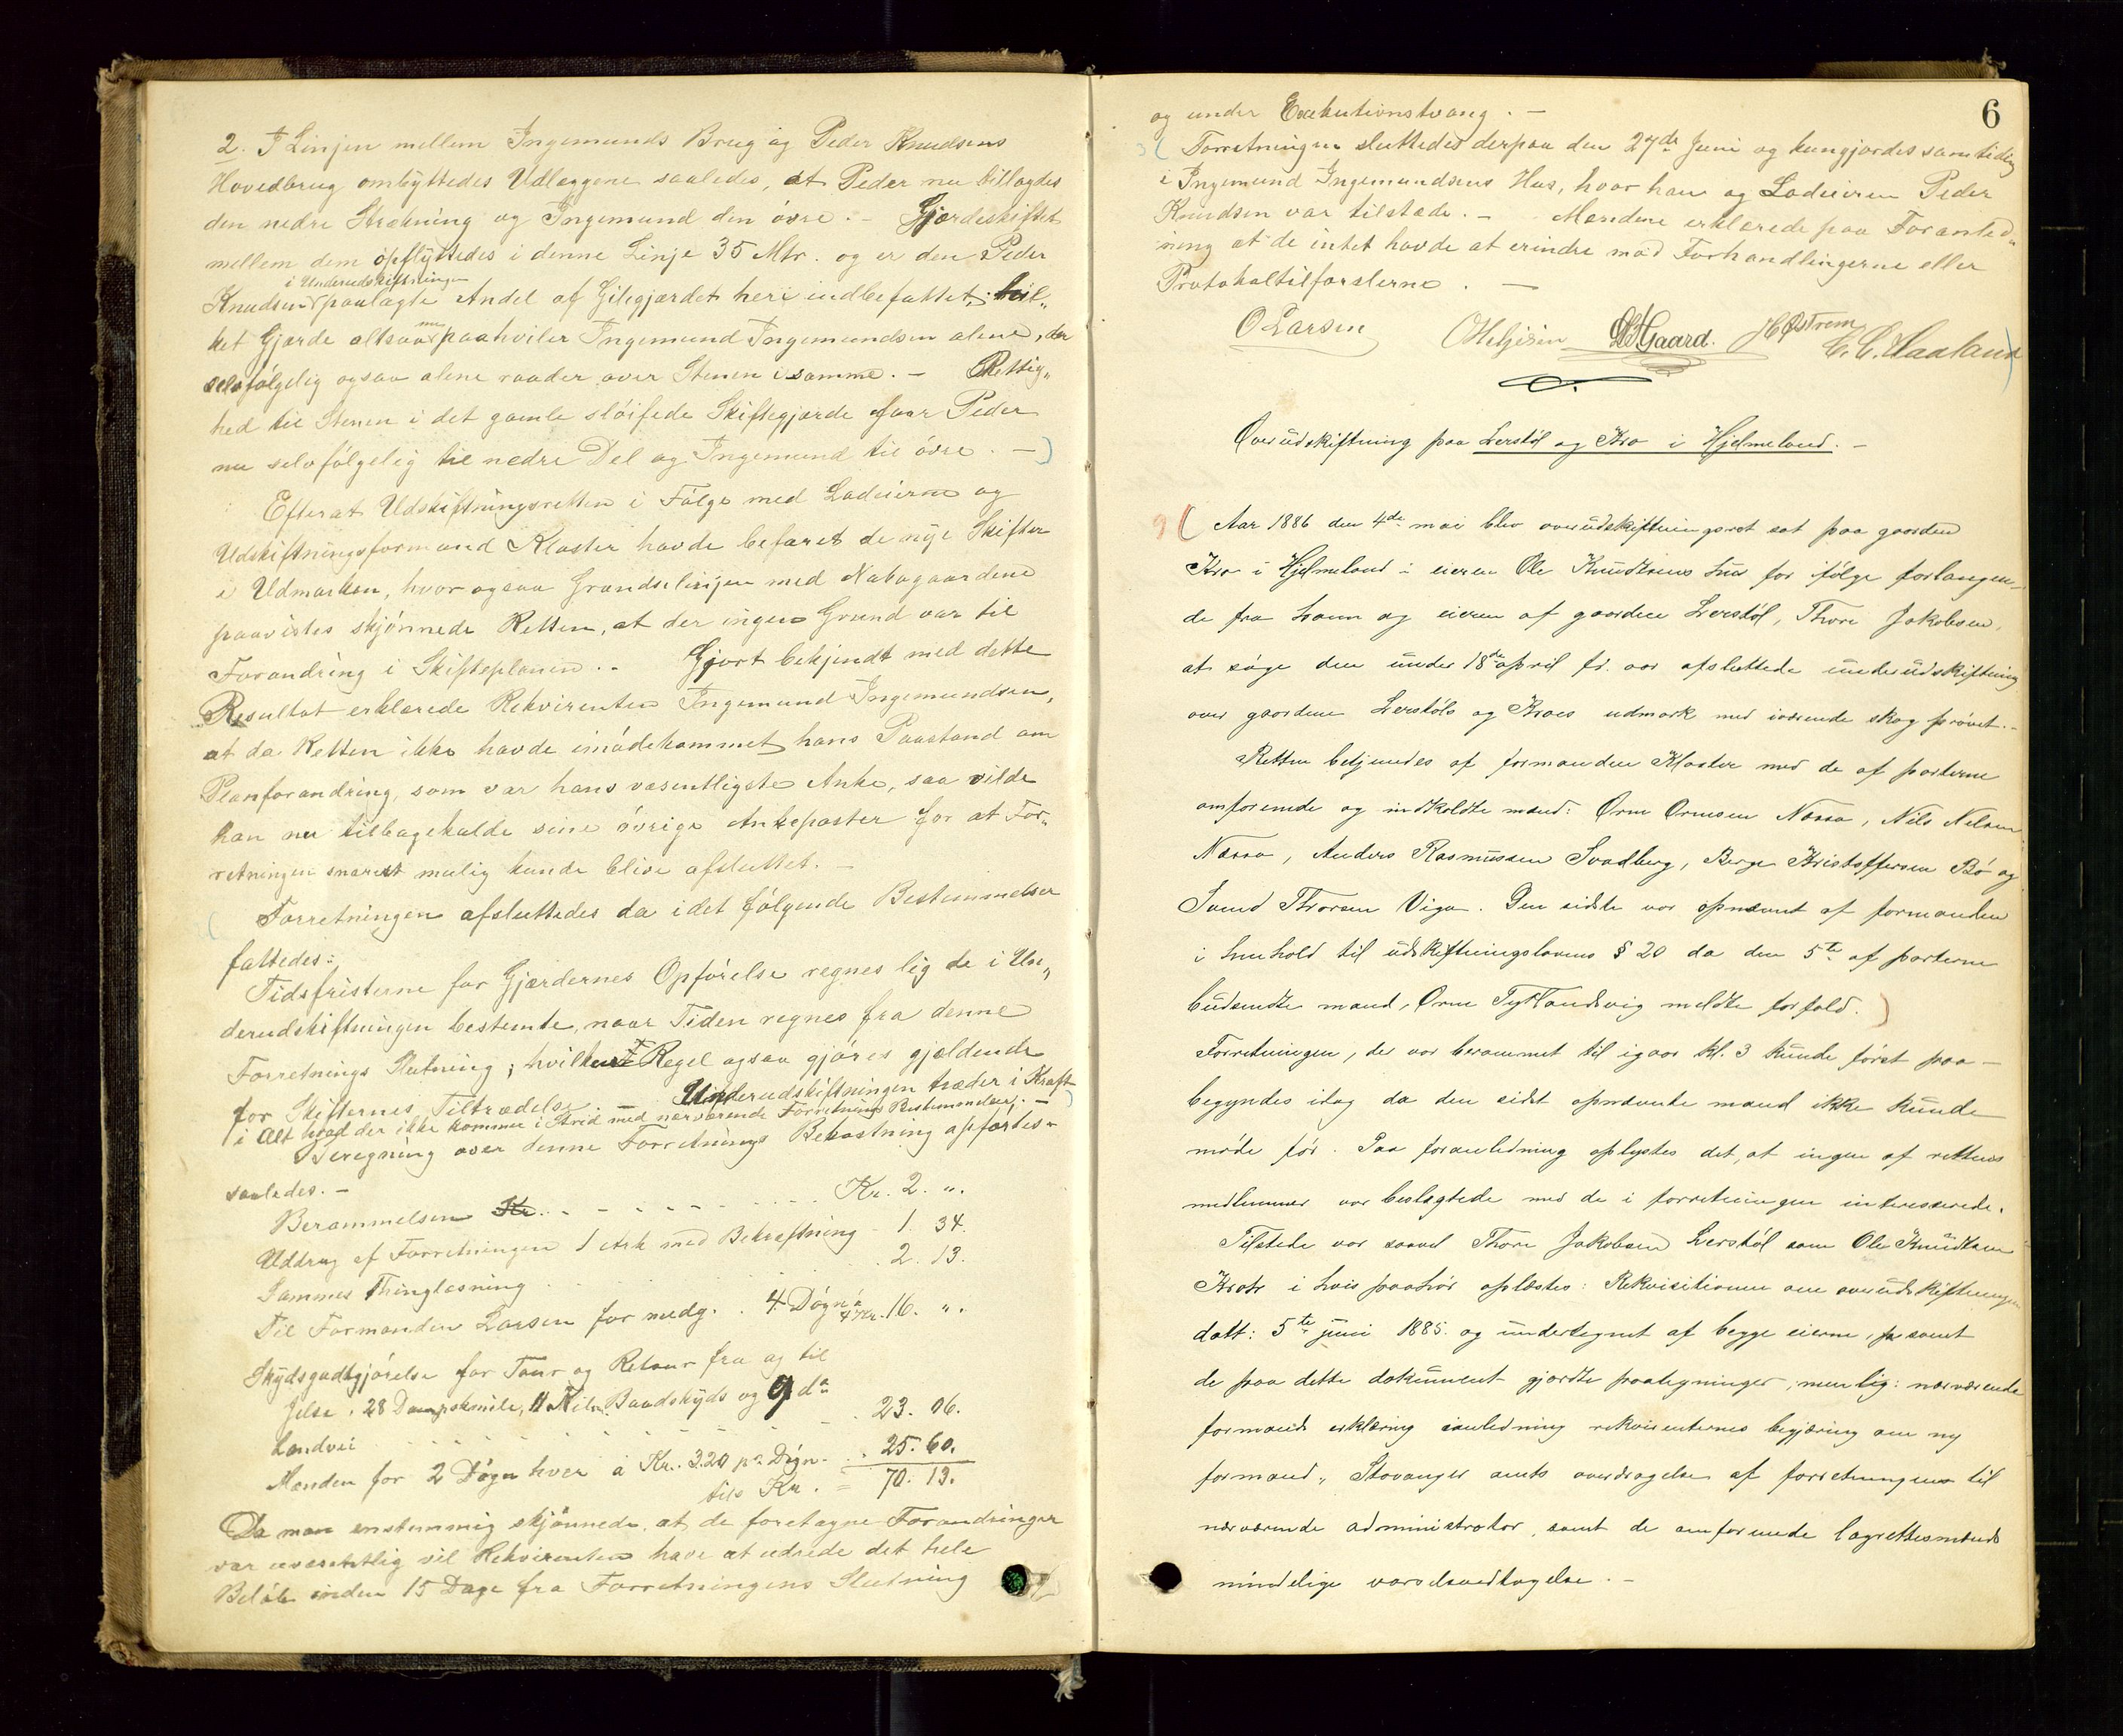 2. I Linjen mellem Ingemunds Brug og Peder Knudsens
Hovedbrug ombyttedes Udlæggene saaledes, at Peder nu tillagdes
den nedre Strækning og Ingemund den övre. – Gjærdeskiftet
mellem dem opflyttedes i denne Linje 35 Mtr. og er den Peder
i Underudskiftningen
Knudsen paalagte Andel af Gilegjærdet heri indbefattet; hvil„
ket Gjærde altsaa nu paahviler Ingemund Ingemundsen alene, der
selvfölgelig ogsaa alene raader over Stenen i samme. – Rettig„
hed til Stenen i det gamle slöifede Skiftegjærde faar Peder
nu selvfölgelig til nedre Del og Ingemund til övre. –
Efterat Udskiftningsretten i Fölge med Lodeierne og
Udskiftningsformand Kloster havde befaret de nye Skifter
i Udmarken, hvor ogsaa Grændselinjen med Nabogaardene
paavistes skjönnede Retten, at der ingen Grund var til
Forandring i Skifteplanen. – Gjort bekjendt med dette
Resultat erklærede Rekvirenten Ingemund Ingemundsen,
at da Retten ikke havde imödekommet hans Paastand om
Planforandring, som var hans væsentligste Anke, saa vilde
han nu tilbagekalde sine övrige Ankeposter for at For„
retningen snarest mulig kunde blive afsluttet. –
Forretningen afsluttedes da idet fölgende Bestemmelser
fattedes:
Tidsfristerne for Gjærdernes Opförelse regnes lig de i Un„
derudskiftningen bestemte, naar Tiden regnes fra denne
Forretnings Slutning; hvilken Regel ogsaa gjöres gjældende
for Skifternes Tiltrædelse. Underudskiftningen træder i Kraft
i Alt hvad der ikke kommer i Strid med nærværende Forretnings Bestemmelser. –
Beregning over denne Forretnings Bekostning opförtes
saaledes. –
Berammelsen Kr. 2. „.
Uddrag af Forretningen 1 Ark med Bekræftning - 1. 34.
Sammes Thinglæsning 2. 13.
Til Formanden Larsen for medg. 4 Dögn à 4 Kr. 16. „.
Skydsgodtgjörelse for Tour og Retour fra og til
Jelse, 28 Dampskmile, 11 Mil Baadskyds og 9 do
Landvei 23. 06.
Mænden for 2 Dögn hver à Kr. 3.20 pr Dögn 25. 60.
tils Kr. = 70. 13.
Da man enstemmig skjönnede, at de foretagne Forandringer
var uvæsentlig vil Rekvirenten have at udrede det hele
Belöb inden 15 Dage fra Forretningens Slutning
6
og under Exekutionstvang. –
Forretningen sluttedes derpaa den 27de Juni og kungjordes samtidig
i Ingemund Ingemundsens Hus, hvor han og Lodeieren Peder
Knudsen var tilstæde. – Mændene erklærede paa Foranled„
ning at de intet havde at erindre mod Forhandlingerne eller
Protokoltilförslerne. –
O Larsen O Helgesen Gaard. Østrem C. C. Haaland
Overudskiftning paa Lerstöl og Kro i Hjelmeland. –
Aar 1886 den 4de mai blev overudskiftningsret sat paa gaarden
Kro i Hjelmeland i eieren Ole Knudsens hus for ifölge forlangen„
de fra ham og eieren af gaarden Lerstöl, Thore Jakobsen,
at söge den under 18de april f. aar afsluttede underudskiftning
over gaardene Lerstöls og Kroes udmark med iværende skog prövet. –
Retten betjendes af formanden Kloster med de af parterne
omforenede og indkaldte mænd: Orm Ormsen Nessa, Nils Nilsen
Nessa, Anders Rasmussen Svadberg, Berge Kristoffersen Bö og
Svend Thorsen Viga. Den sidste var opnævnt af formanden
i henhold til udskiftningslovens § 20 da den 5te af parterne
budsendte mand, Orm Tytlandsvig meldte forfald.
Forretningen, der var berammet til igaar kl. 3 kunde först paa–
begyndes idag da den sidst opnævnte mand ikke kunde
möde för. Paa foranledning oplystes det, at ingen af rettens
medlemmer var beslægtede med de i forretningen interesserede.
Tilstede var saavel Thore Jakobsen Lerstöl som Ole Knudsen
Kro i hvis paahör oplæstes: Rekvisitionen om overudskiftningen
datt: 5te juni 1885. og undertegnet af begge eierne, samt
de paa dette dokument gjordte paategninger, nemlig: nærværende
formands erklæring ianledning rekvirenternes begjæring om ny
formand, Stavanger amts overdragelse af forretningen til
nærværende administrator samt de omforenede lagrettesmænds
mindelige varselsvedtagelse. –